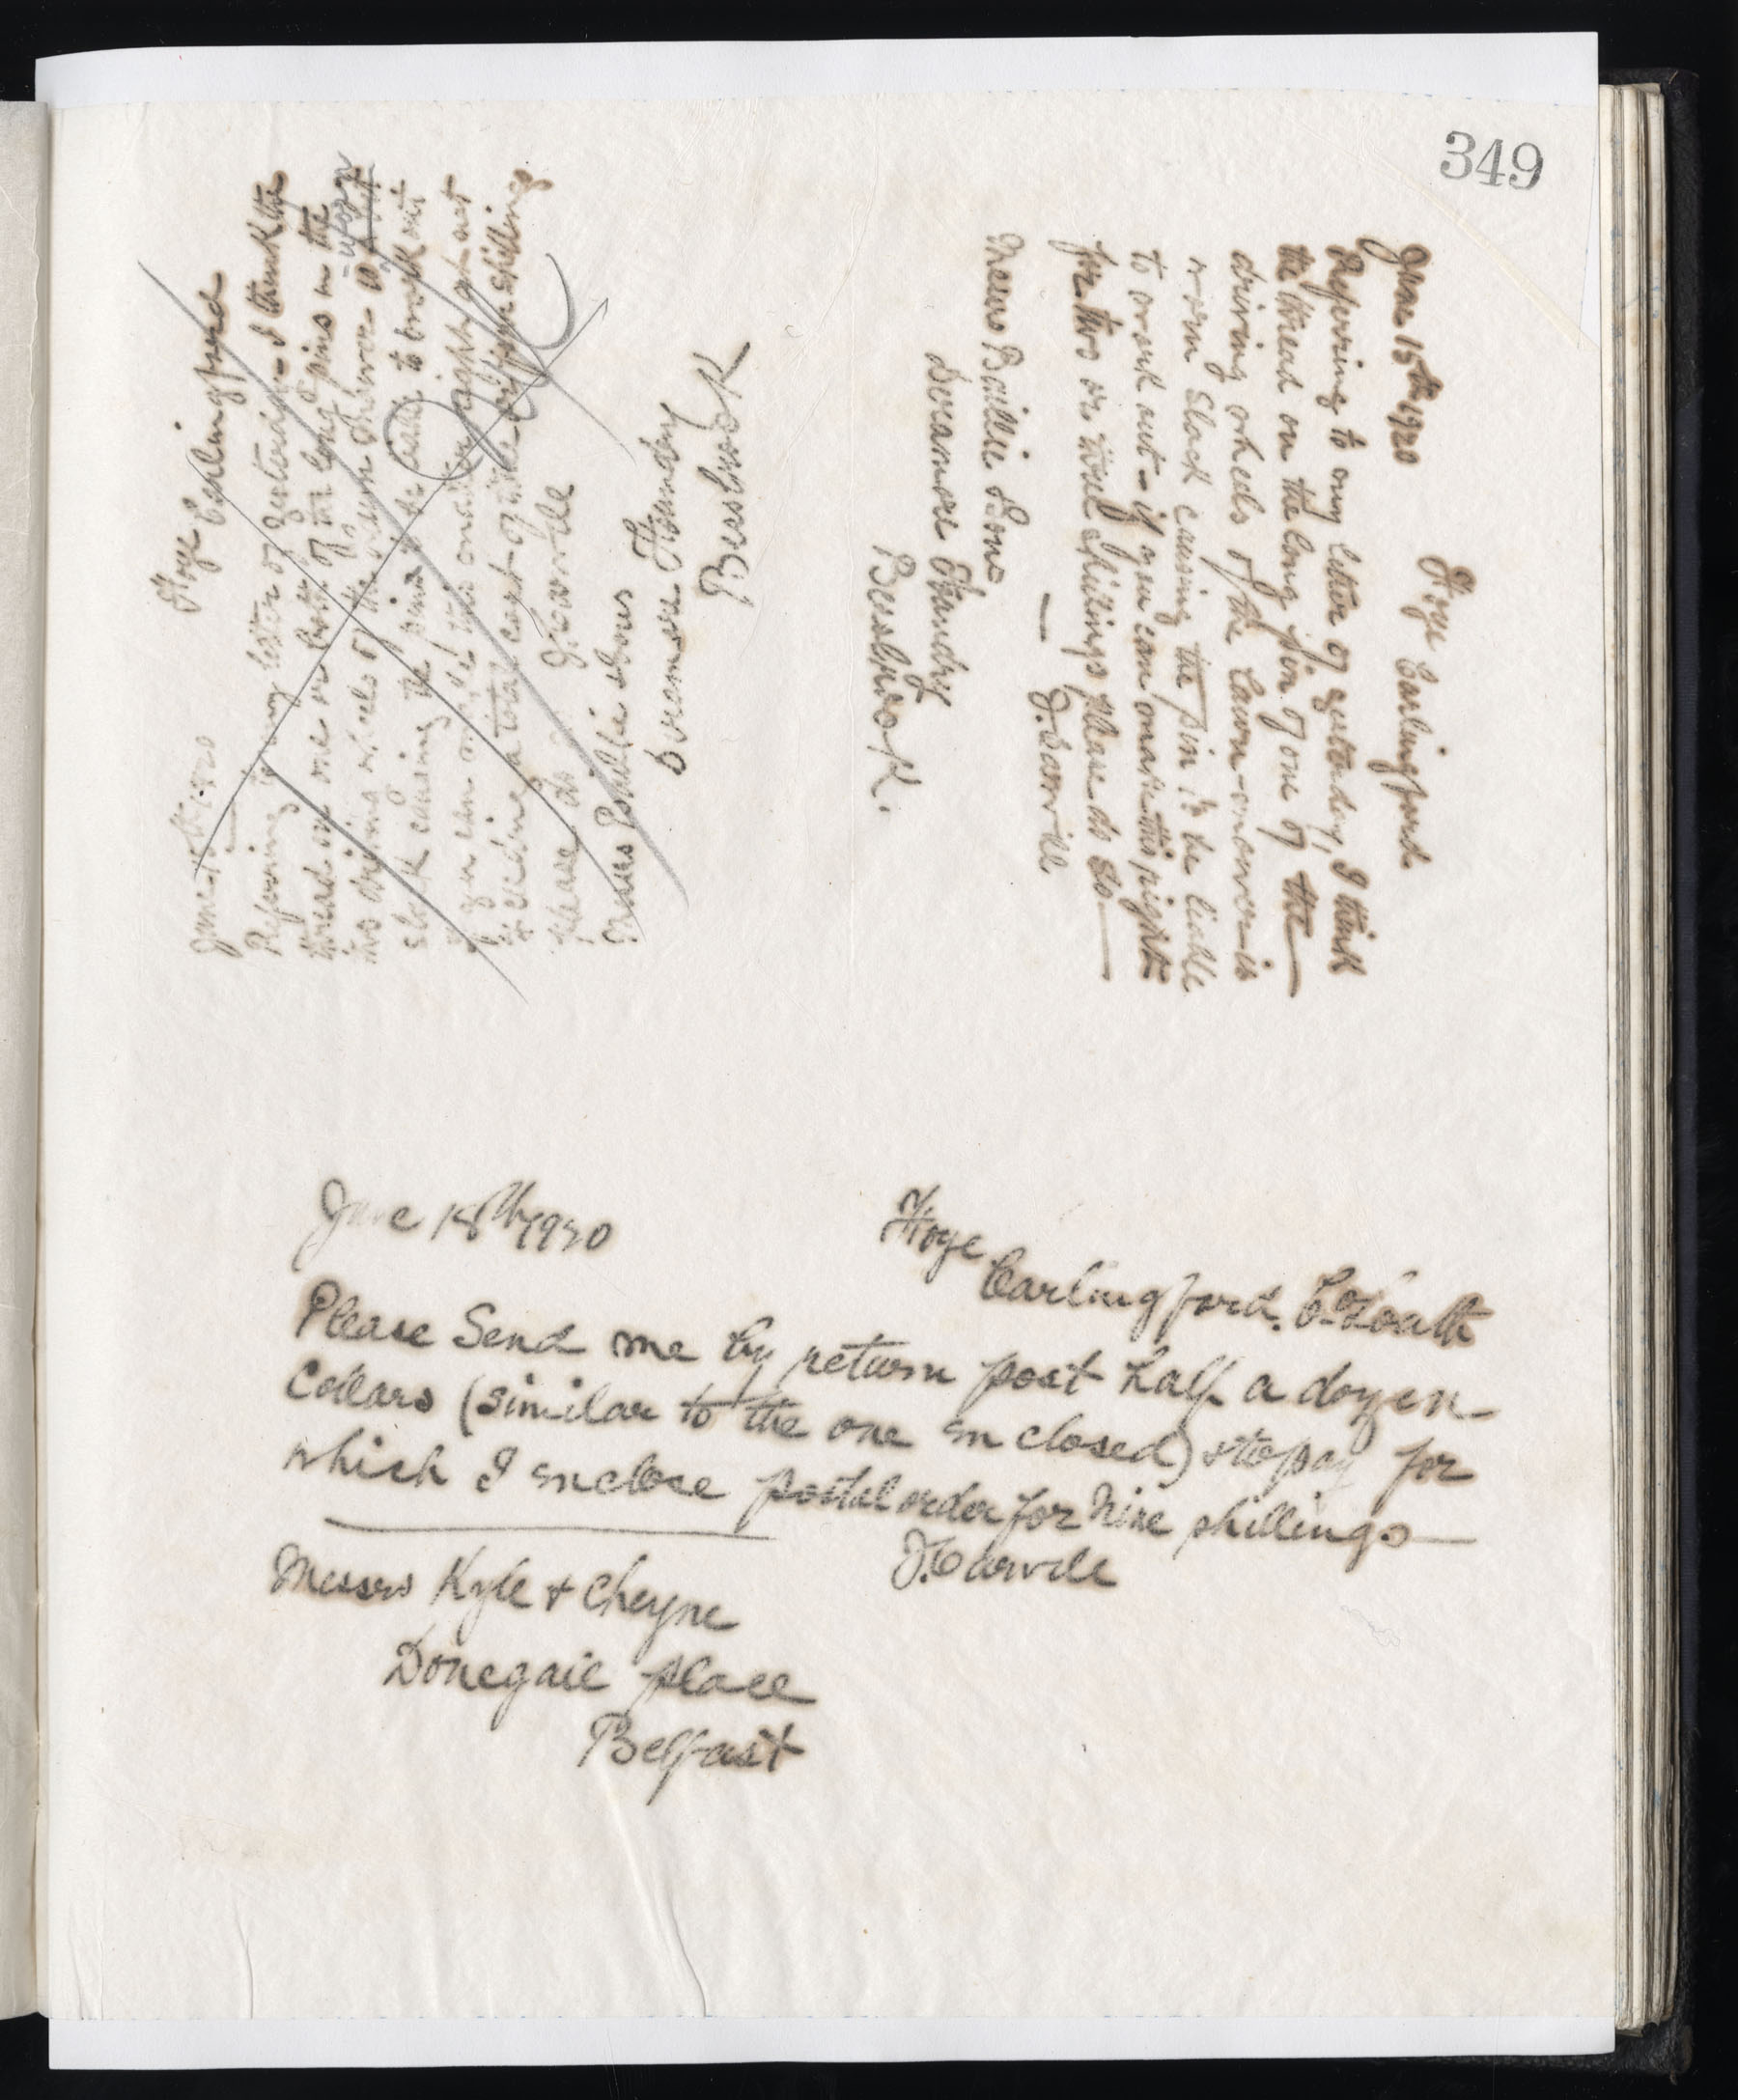 349
June 15th 1920
Foye Carlingford
Referring to my letter of yesterday - I think the
thread on one or both of the long pins in the
two driving wheels of the lawn mower is worn
slack causing the pins to be liable to work out
if you can make this matter right at not
exceeding a total cost of five shillings
please do so J. Carvill
Messrs Baillie & Sons
Deramore Foundry
Bessbrook
June 15th 1920
Foye Carlingford
Referring to my letter of yesterday, I think
the thread on the long pin of one of the
driving wheels of the lawn-mower is
worn slack causing the pin to be liable
to work out - if you can make this right
for two or three shillings please do so
J. Carvill
Messrs Baillie & Sons
Deramore Foundry
Bessbrook.
June 18th 1920
Foye
Carlingford. Co Louth
Please Send me by return post half a dozen
Collars (similar to the one enclosed) & to pay for
which I enclose postal order for Nine shillings
J. Carvill
Messrs Kyle & Cheyne
Donegall place
Belfast